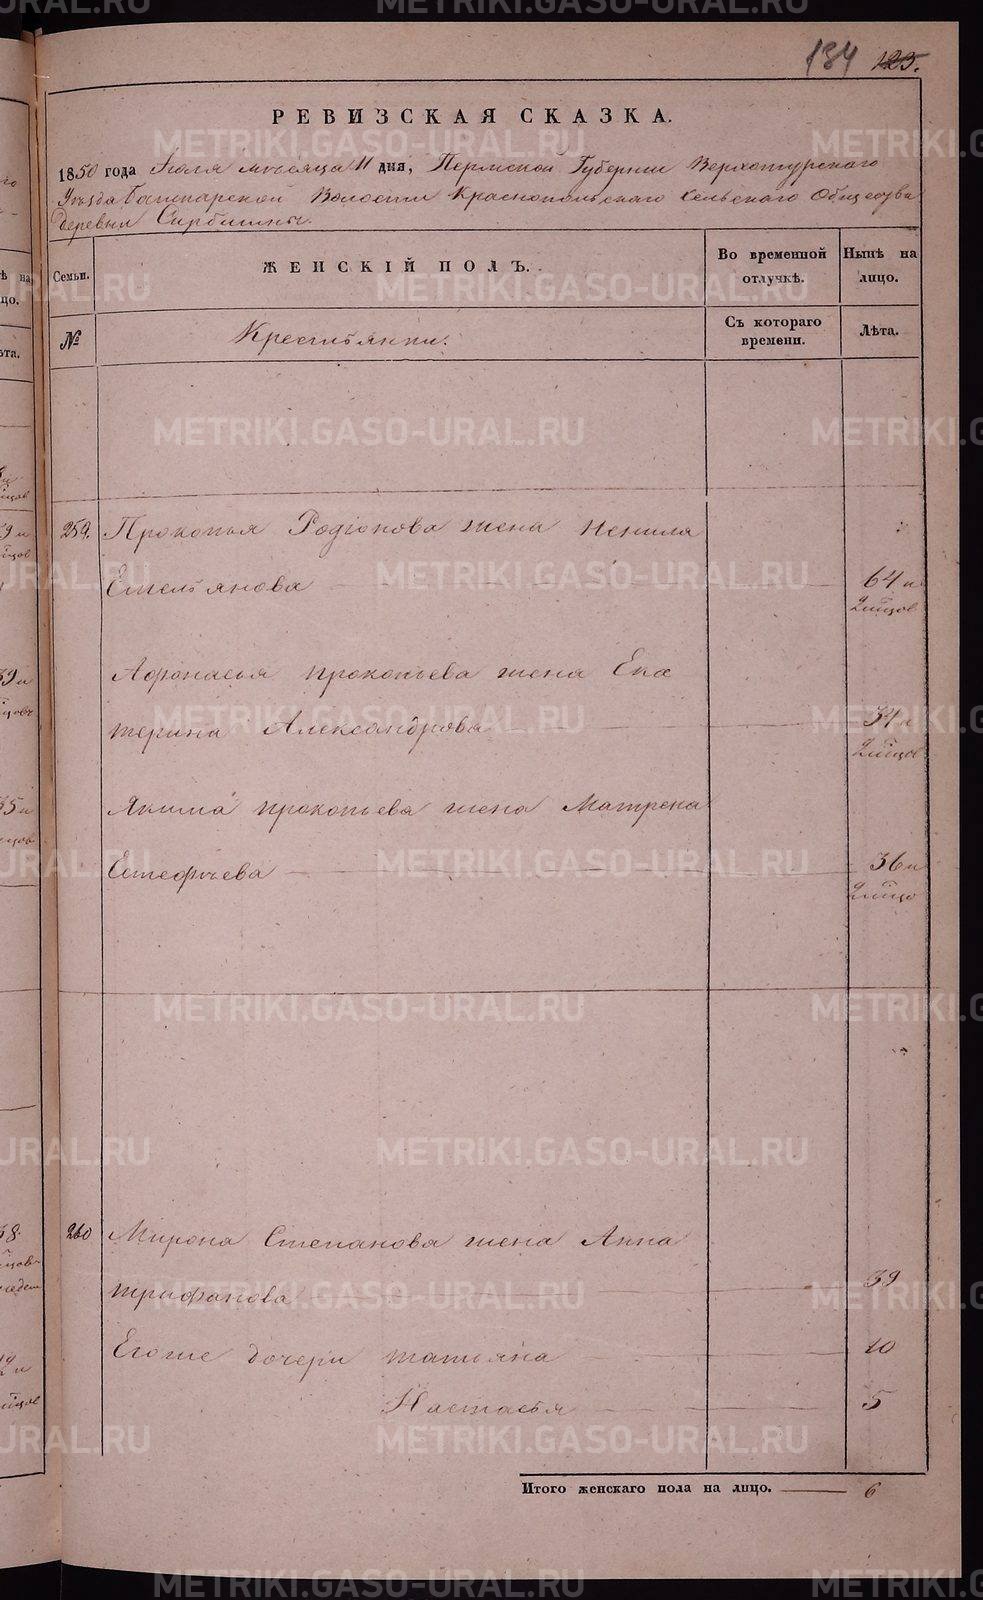 134 125.
РЕВИЗСКАЯ СКАЗКА.
1850 года Июля месяца 11 дня, Пермской Губернии Верхотурского
Уезда Башкарской Волости Краснопольского Сельского Общества
деревни
Семьи.
ЖЕНСКІЙ ПОЛЪ.
Во временной отлучкѣ.
Нынѣ на лицо.
№
Крестьянки.
Съ котораго времени.
Лѣта.
259. Прокопья Родіонова жена Ненила
Емельянова 64 и
2 мцов
Афонасья прокопьева жена Ека
терина Александрова 34 и
2 мцов
Якима прокопьева жена Матрена
Естефеева 36 и
2 мцо
260 Мирона Степанова жена Анна
трифанова 39
Егоже дочери татьяна 10
Настасья 5
Итого женскаго пола на лицо. 6
METRIKI.GASO-URAL.RU